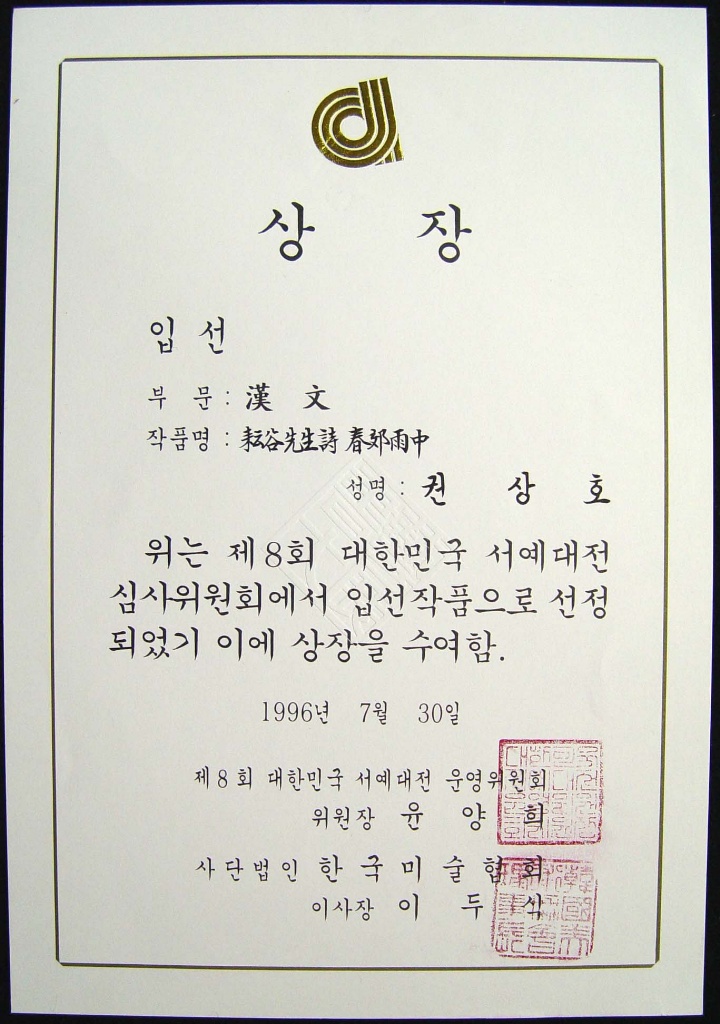 상 장
입 선
부 문 : 漢 文
작품명 : 耘谷先生詩 春郊雨中
성명 : 권 상 호
위는 제8회 대한민국 서예대전
심사위원회에서 입선작품으로 선정
되었기 이에 상장을 수여함.
1996년 7월 30일
제8회 대한민국 서예대전 운영위원회
위원장 윤 양 희
사단법인 한국미술협회
이사장 이 두 식